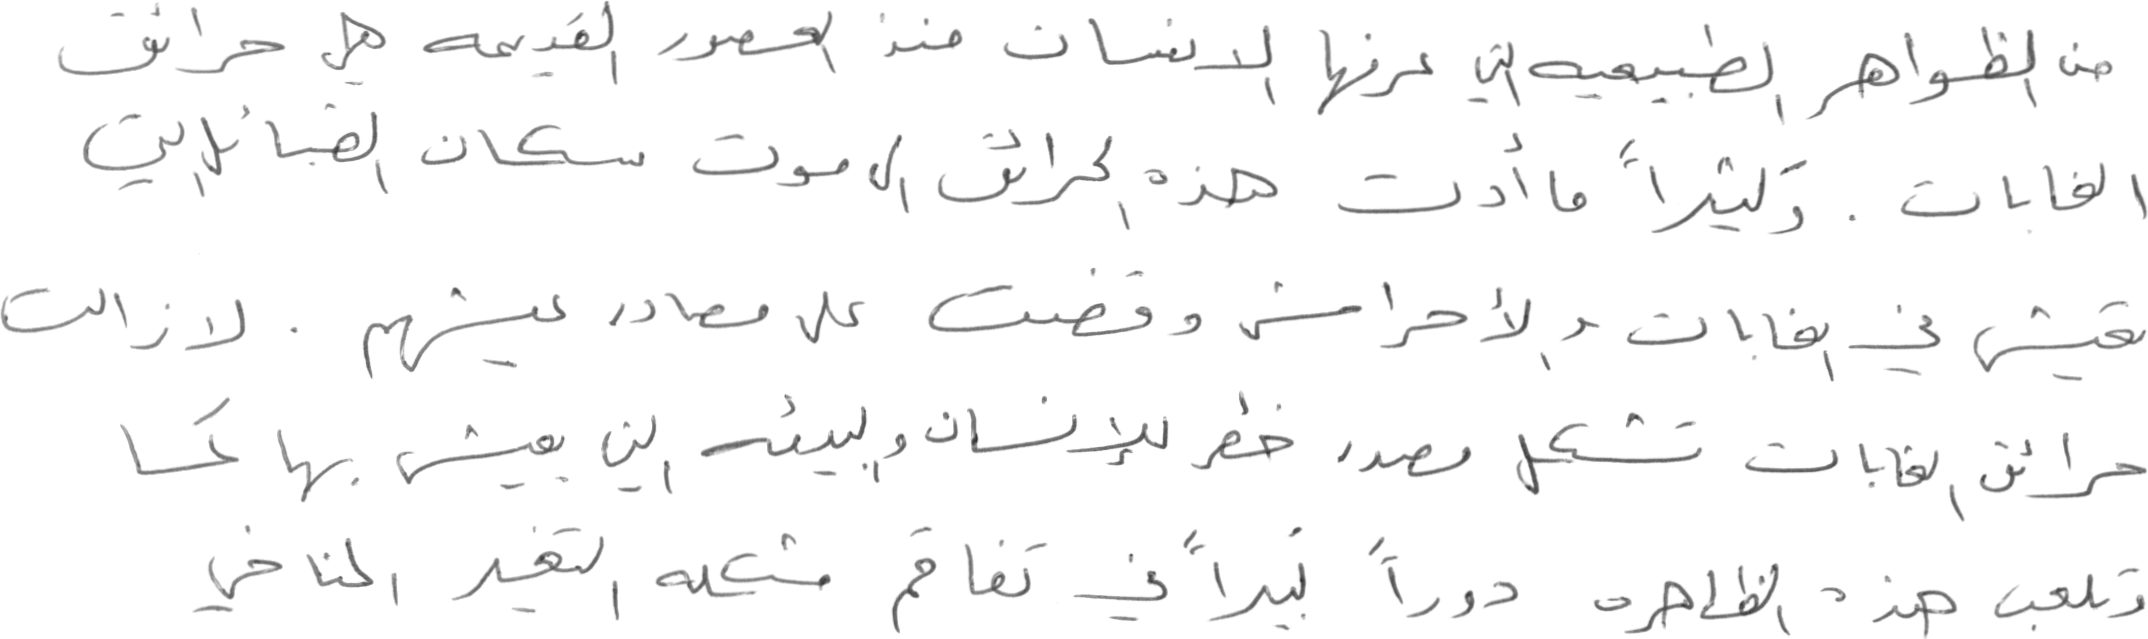 من الظواهر الطبيعيه التي عرفها الانسان منذ العصور القديمه هي حرائق
الغابات . وكثيراً ما أدت هذه الحرائق الى موت سكان القبائل التي
تعيش في الغابات والأحراش وقضت على مصادر عيشهم . لازالت
حرائق الغابات تشكل مصدر خطر للإنسان والبيئه التي يعيش بها كما
وتلعب هذه الظاهره دوراً كبيراً في تفاقم مشكله التغير المناخي